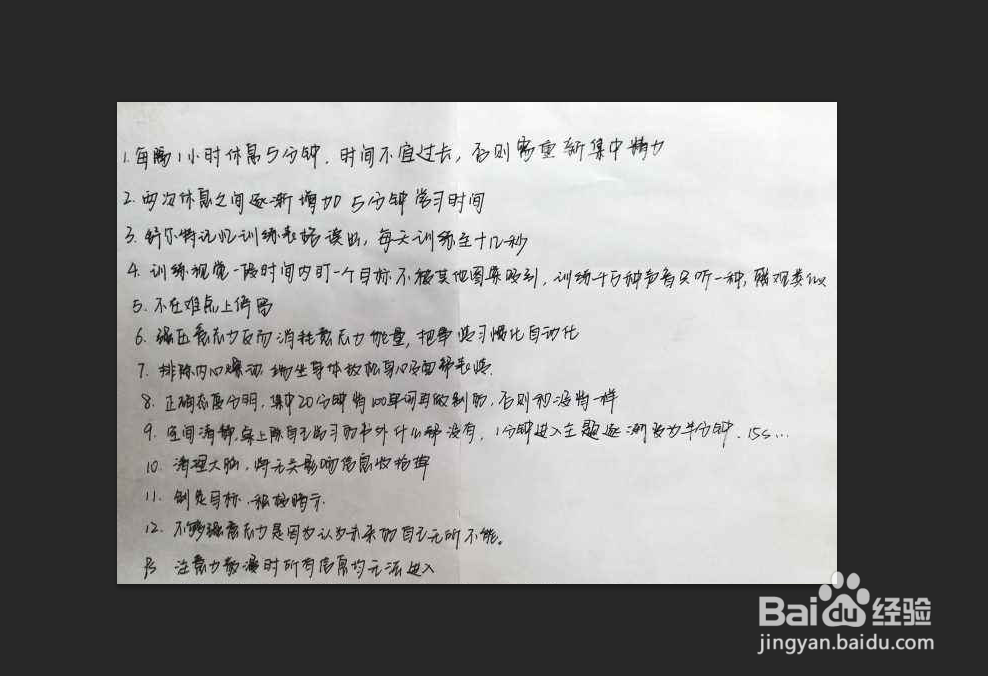 1. 每隔1小时休息5分钟，时间不宜过长，否则需重新集中精力
2. 两次休息之间逐渐增加5分钟学习时间
3. 舒尔特记忆训练表格读出，每天训练至十几秒
4. 训练视觉一段时间内盯一个目标不被其他图案吸引，训练千万种声音只听一种，
5. 不在难点上停留
6. 强压意志力反而消耗意志力能量，把学习惯化自动化
7. 排除内心躁动 端坐身体放松
8. 正确态度分明，集中20分钟将100单词再做别的，否则和没背一样
9. 空间清静，桌上除自己学习的书外什么都没有，1分钟进入主题逐渐改为半分钟、15s...
10. 清理大脑，将无关影响信息收拾掉
11. 制定目标，积极暗示
12. 不够强意志力是因为认为未来的自己无所不能。
13 注意力散漫时所有信息均无法进入
Baidu 经验
jingyan.baidu.com